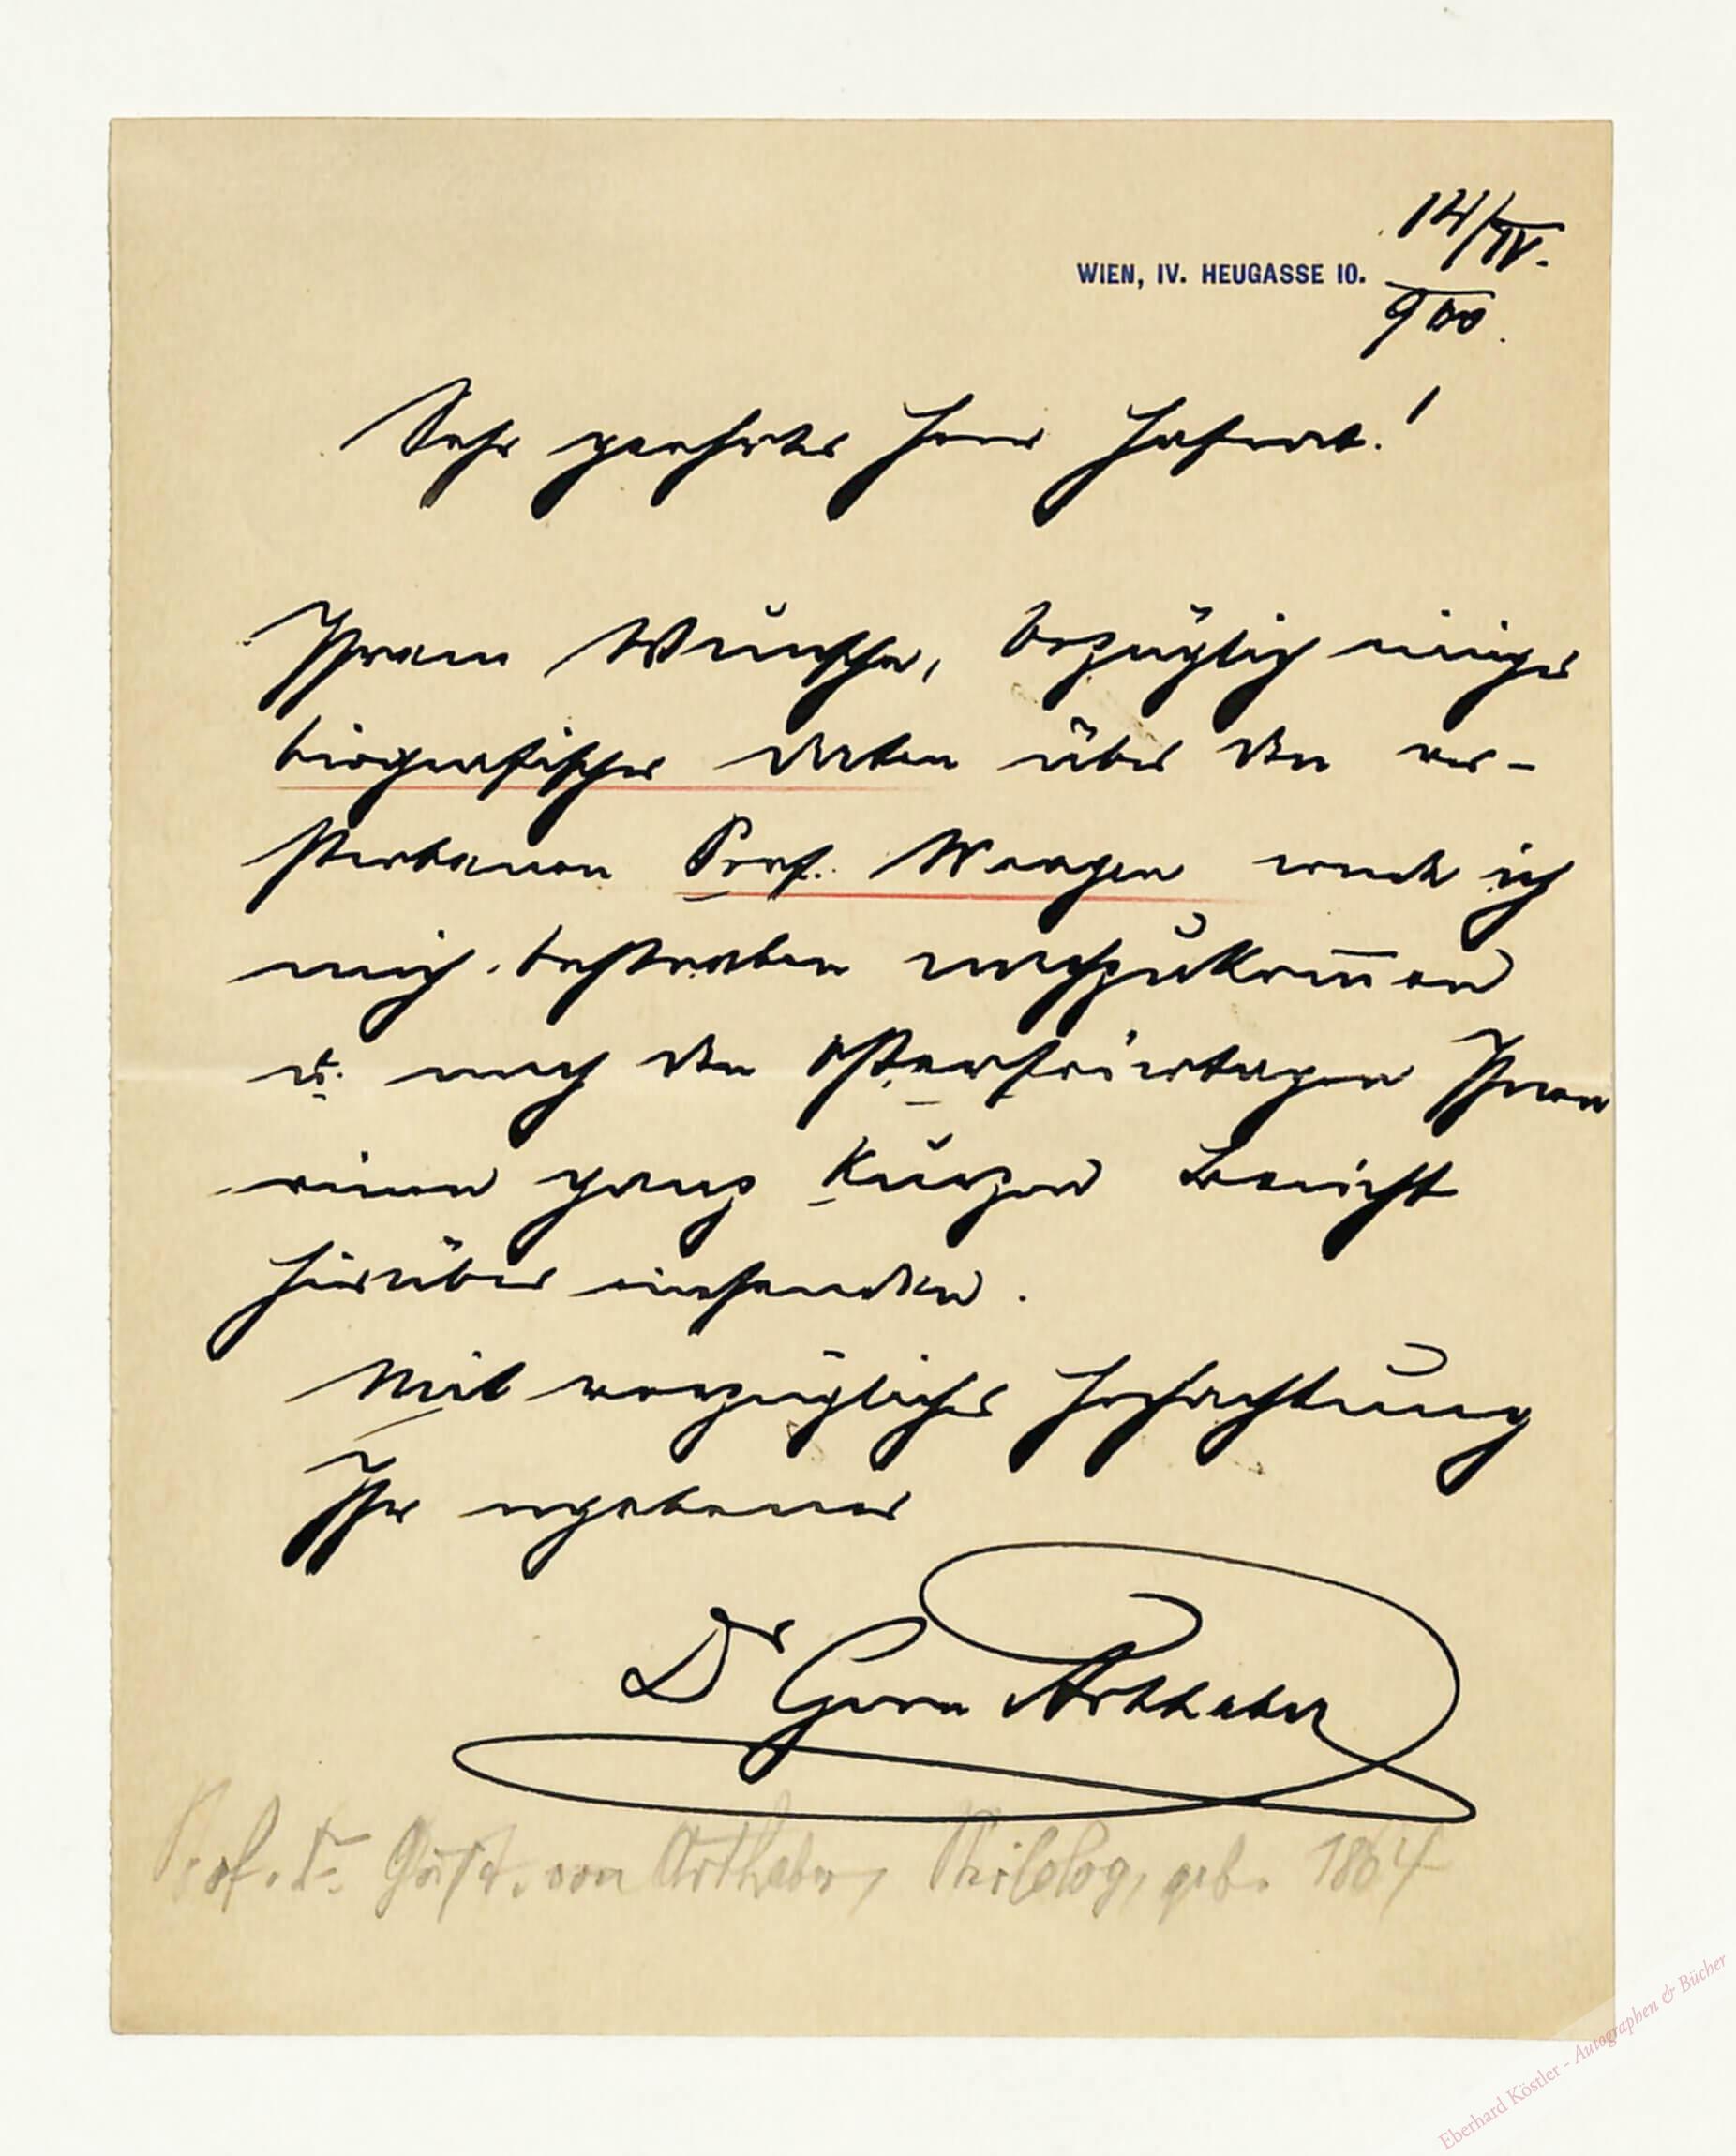 14/IV.
WIEN, IV. HEUGASSE 10.
900.
Sehr geehrter Herr Hofrat!
Ihrem Wunsche, bezüglich einiger
biografischer Daten über den ver-
storbenen Prof. Waagen werde ich
mich bestreben nachzukom̅en
u. nach den Osterfeiertagen Ihnen
einen ganz kurzen Bericht
hierüber einsenden.
Mit vorzüglicher Hochachtung
Ihr ergebener
Dr Arthaber
Prof. Dr. Gust. von Arthaber, Philolog, geb. 1864
Eberhard Köstler - Autographen & Bücher